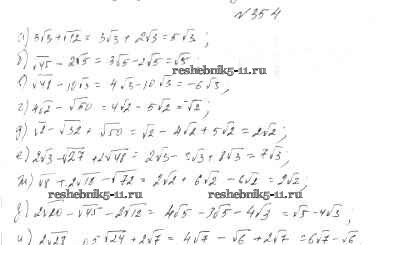 №354
а) 3√3 + √12 = 3√3 + 2√3 = 5√3;
б) √45 - 2√5 = 3√5 - 2√5 = √5;
reshebnik5-11.ru
в) √48 - 10√3 = 4√3 - 10√3 = -6√3,
г) 4√2 - √50 = 4√2 - 5√2 = -√2;
д) √2 - √32 + √50 = √2 - 4√2 + 5√2 = 2√2;
е) 2√3 - √27 + 2√48 = 2√3 - 3√3 + 8√3 = 7√3;
ж) √8 + 2√18 - √72 = 2√2 + 6√2 - 6√2 = 2√2,
reshebnik5-11.ru reshebnik5-11.ru
з) 2√20 - √45 - 2√12 = 4√5 - 3√5 - 4√3 = √5 - 4√3;
и) 2√28 0,5√24 + 2√7 = 4√7 - √6 + 2√7 = 6√7 - √6.